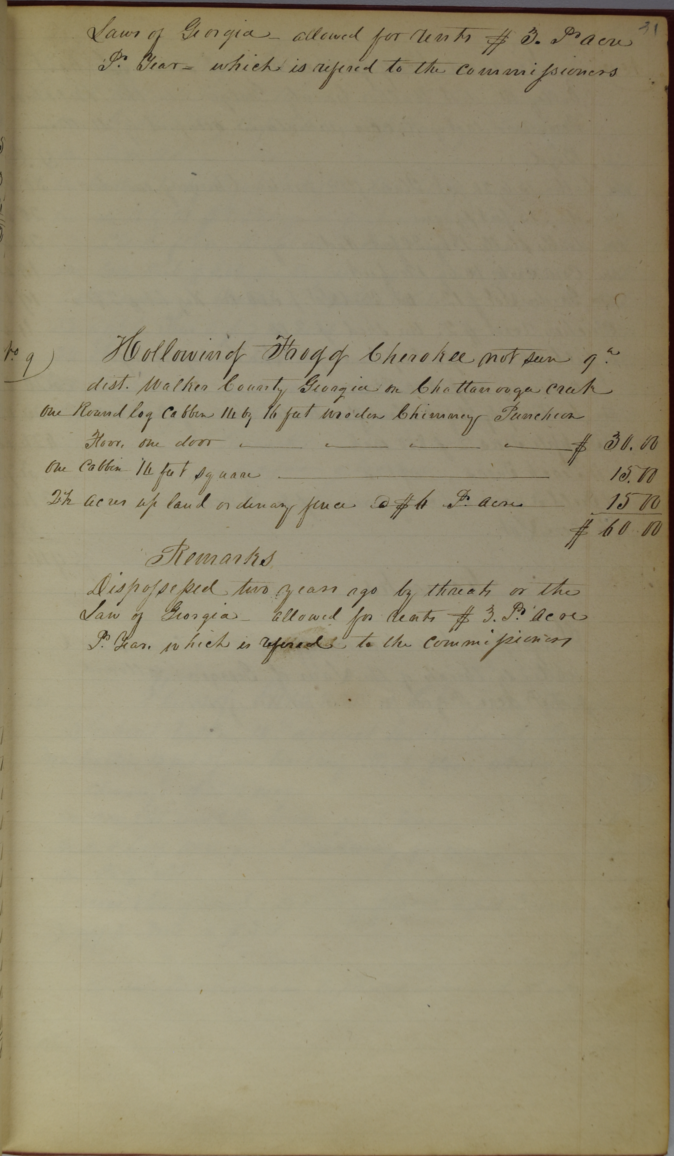 31
Laws of Georgia - allowed for rents $ 3. Pr acre
Pr. Year - which is refered to the commissioners
No 9)
Hollowing Frogg Cherokee not seen 9th
dist. Walker County Georgia on Chattanooga creek
one Round log cabbin 16 by 16 feet wooden Chimney Puncheon
Floor, one door $ 30.00
one Cabbin 14 feet square 15.00
2½ acres up land ordinary fence @ $ 6 Pr. acre 15 00
$ 60 00
Remarks
Dispossessed two years ago by threats or the
Law of Georgia - allowed for rents $ 3. Pr acre
Pr. Year. which is refered to the commissioners